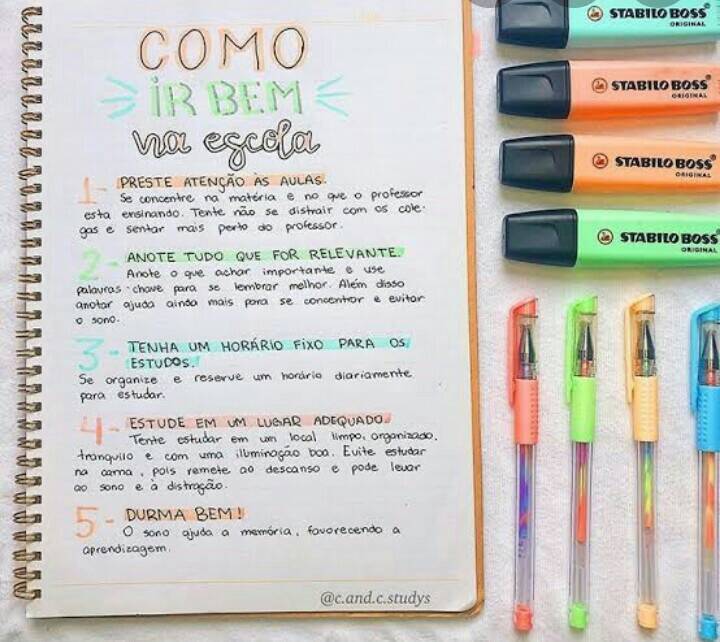 COMO
IR BEM
na escola
1- PRESTE ATENÇÃO ÀS AULAS.
Se concentre na matéria e no que o professor
esta ensinando. Tente não se distrair com os cole-
gas e sentar mais perto do professor.
2- ANOTE TUDO QUE FOR RELEVANTE.
Anote o que achar importante e use
palavras-chave para se lembrar melhor. Além disso
anotar ajuda ainda mais para se concentrar e evitar
o sono.
3- TENHA UM HORÁRIO FIXO PARA OS
ESTUDOS.
Se organize e reserve um horário diariamente
para estudar.
4- ESTUDE EM UM LUGAR ADEQUADO.
Tente estudar em um local limpo, organizado,
tranquilo e com uma iluminação boa. Evite estudar
na cama, pois remete ao descanso e pode levar
ao sono e à distração.
5- DURMA BEM!
O sono ajuda a memória, favorecendo a
aprendizagem.
@c.and.c.studys
STABILO BOSS
ORIGINAL
STABILO BOSS
ORIGINAL
STABILO BOSS
ORIGINAL
STABILO BOSS
ORIGINAL